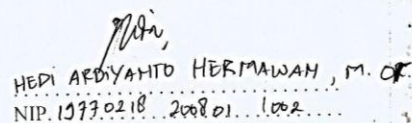 HEDI ARDIYANTO HERMAWAN, M. OR
NIP. 19770218 200801 1002